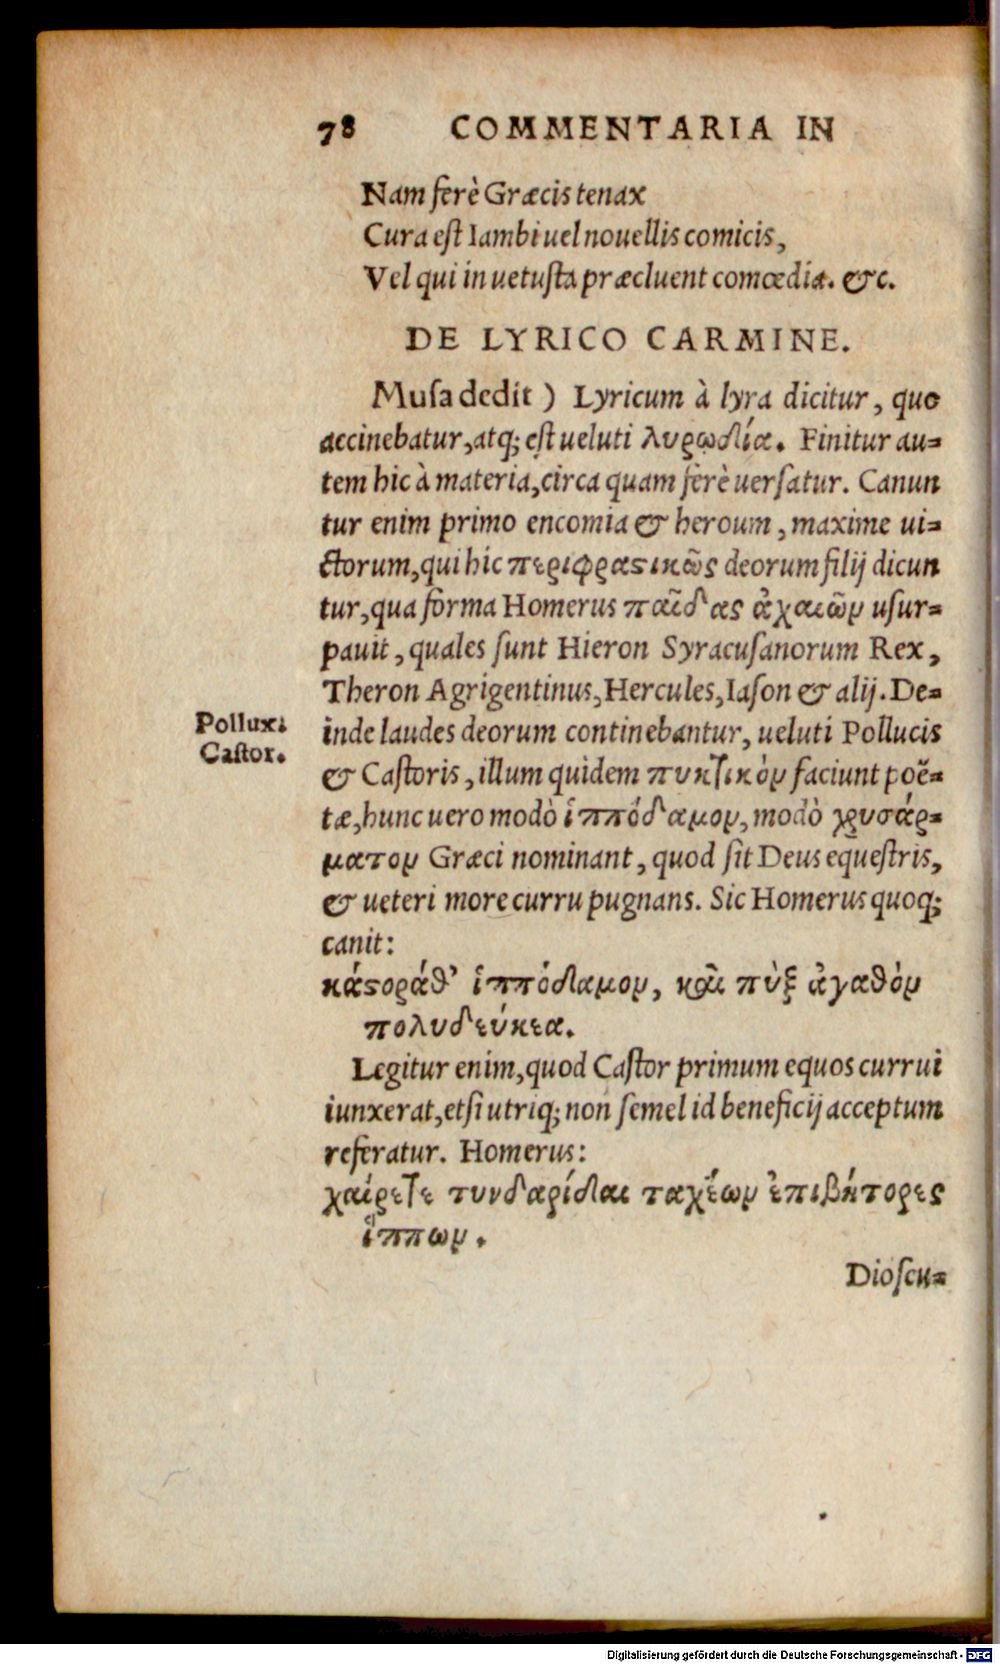 78 COMMENTARIA IN
Nam ferè Græcis tenax
Cura est Iambi uel nouellis comicis,
Vel qui in uetusta præcluent comœdia. &c.
DE LYRICO CARMINE.
Musa dedit) Lyricum à lyra dicitur, quo
accinebatur, atq; est ueluti λυρῳδία. Finitur au=
tem hic à materia, circa quam ferè uersatur. Canun
tur enim primo encomia & heroum, maxime ui=
ctorum, qui hic περιφραϛικῶς deorum filij dicun
tur, qua forma Homerus παῖδας ἀχαιῶν usur=
pauit, quales sunt Hieron Syracusanorum Rex,
Theron Agrigentinus, Hercules, Iason & alij. De=
Pollux.
Castor.
inde laudes deorum continebantur, ueluti Pollucis
& Castoris, illum quidem πυκτικὸν faciunt poë=
tæ, hunc uero modò ἱππόδαμον, modò χρυσάρ=
ματον Græci nominant, quod sit Deus equestris,
& ueteri more curru pugnans. Sic Homerus quoq;
canit:
κάϛοράθ’ ἱππόδαμον, καὶ πὺξ ἀγαθὸν
πολυδεύκεα.
Legitur enim, quod Castor primum equos currui
iunxerat, etsi utriq; non semel id beneficij acceptum
referatur. Homerus:
χαίρετε τυνδαρίδαι ταχέων ἐπιβήτορες
ἵππων.
Dioscu=
Digitalisierung gefördert durch die Deutsche Forschungsgemeinschaft - DFG